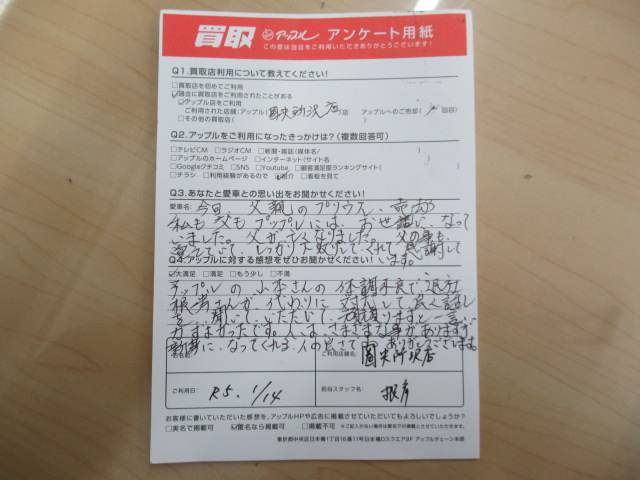 買取 アップル アンケート用紙
この度は当店をご利用いただきありがとうございます!
Q1.買取店利用について教えてください!
□買取店を初めてご利用
☑過去に買取店をご利用されたことがある
☑アップル店をご利用
ご利用された店舗:アップル(圏央所沢店)店 アップルへのご売却( 回目)
□その他の買取店( )
Q2.アップルをご利用になったきっかけは?(複数回答可)
□テレビCM □ラジオCM □新聞・雑誌(媒体名/ )
□アップルのホームページ □インターネット(サイト名 )
□Googleクチコミ □SNS □Youtube □顧客満足度ランキングサイト( )
□チラシ □利用経験があるので ☑紹介 □看板を見て
Q3.あなたと愛車との思い出をお聞かせください!
愛車名: 今回 父親のプリウス、売却
私も父もアップルには、お世話になって
いました。父が亡くなりました。父の事も
覚えていて、しっかり買取りしてくれて感謝して
います。
Q4.アップルに対する感想をぜひお聞かせください!
☑大満足 □満足 □もう少し □不満
アップルの小木さんの体調不良で、
根岸さんが、代わりに対応して、良く話し
を聞いていただいて、頑張りますと一言
力すよかったです。人は、さまざまな事がありますが
になってくれる人の良さです。ありがとうございます。
お名前 ご利用店舗名 圏央所沢店
ご利用日: R5. 1/14 担当スタッフ名 根岸
お客様に書いていただいた感想を、アップルHPや広告に掲載させていただいてもよろしいでしょうか?
□実名で掲載可 ☑匿名なら掲載可 □掲載不可 ※ご記入がない場合は匿名での掲載とさせていただきます。
東京都中央区日本橋1丁目16番11号日本橋Dスクエア8F アップルチェーン本部